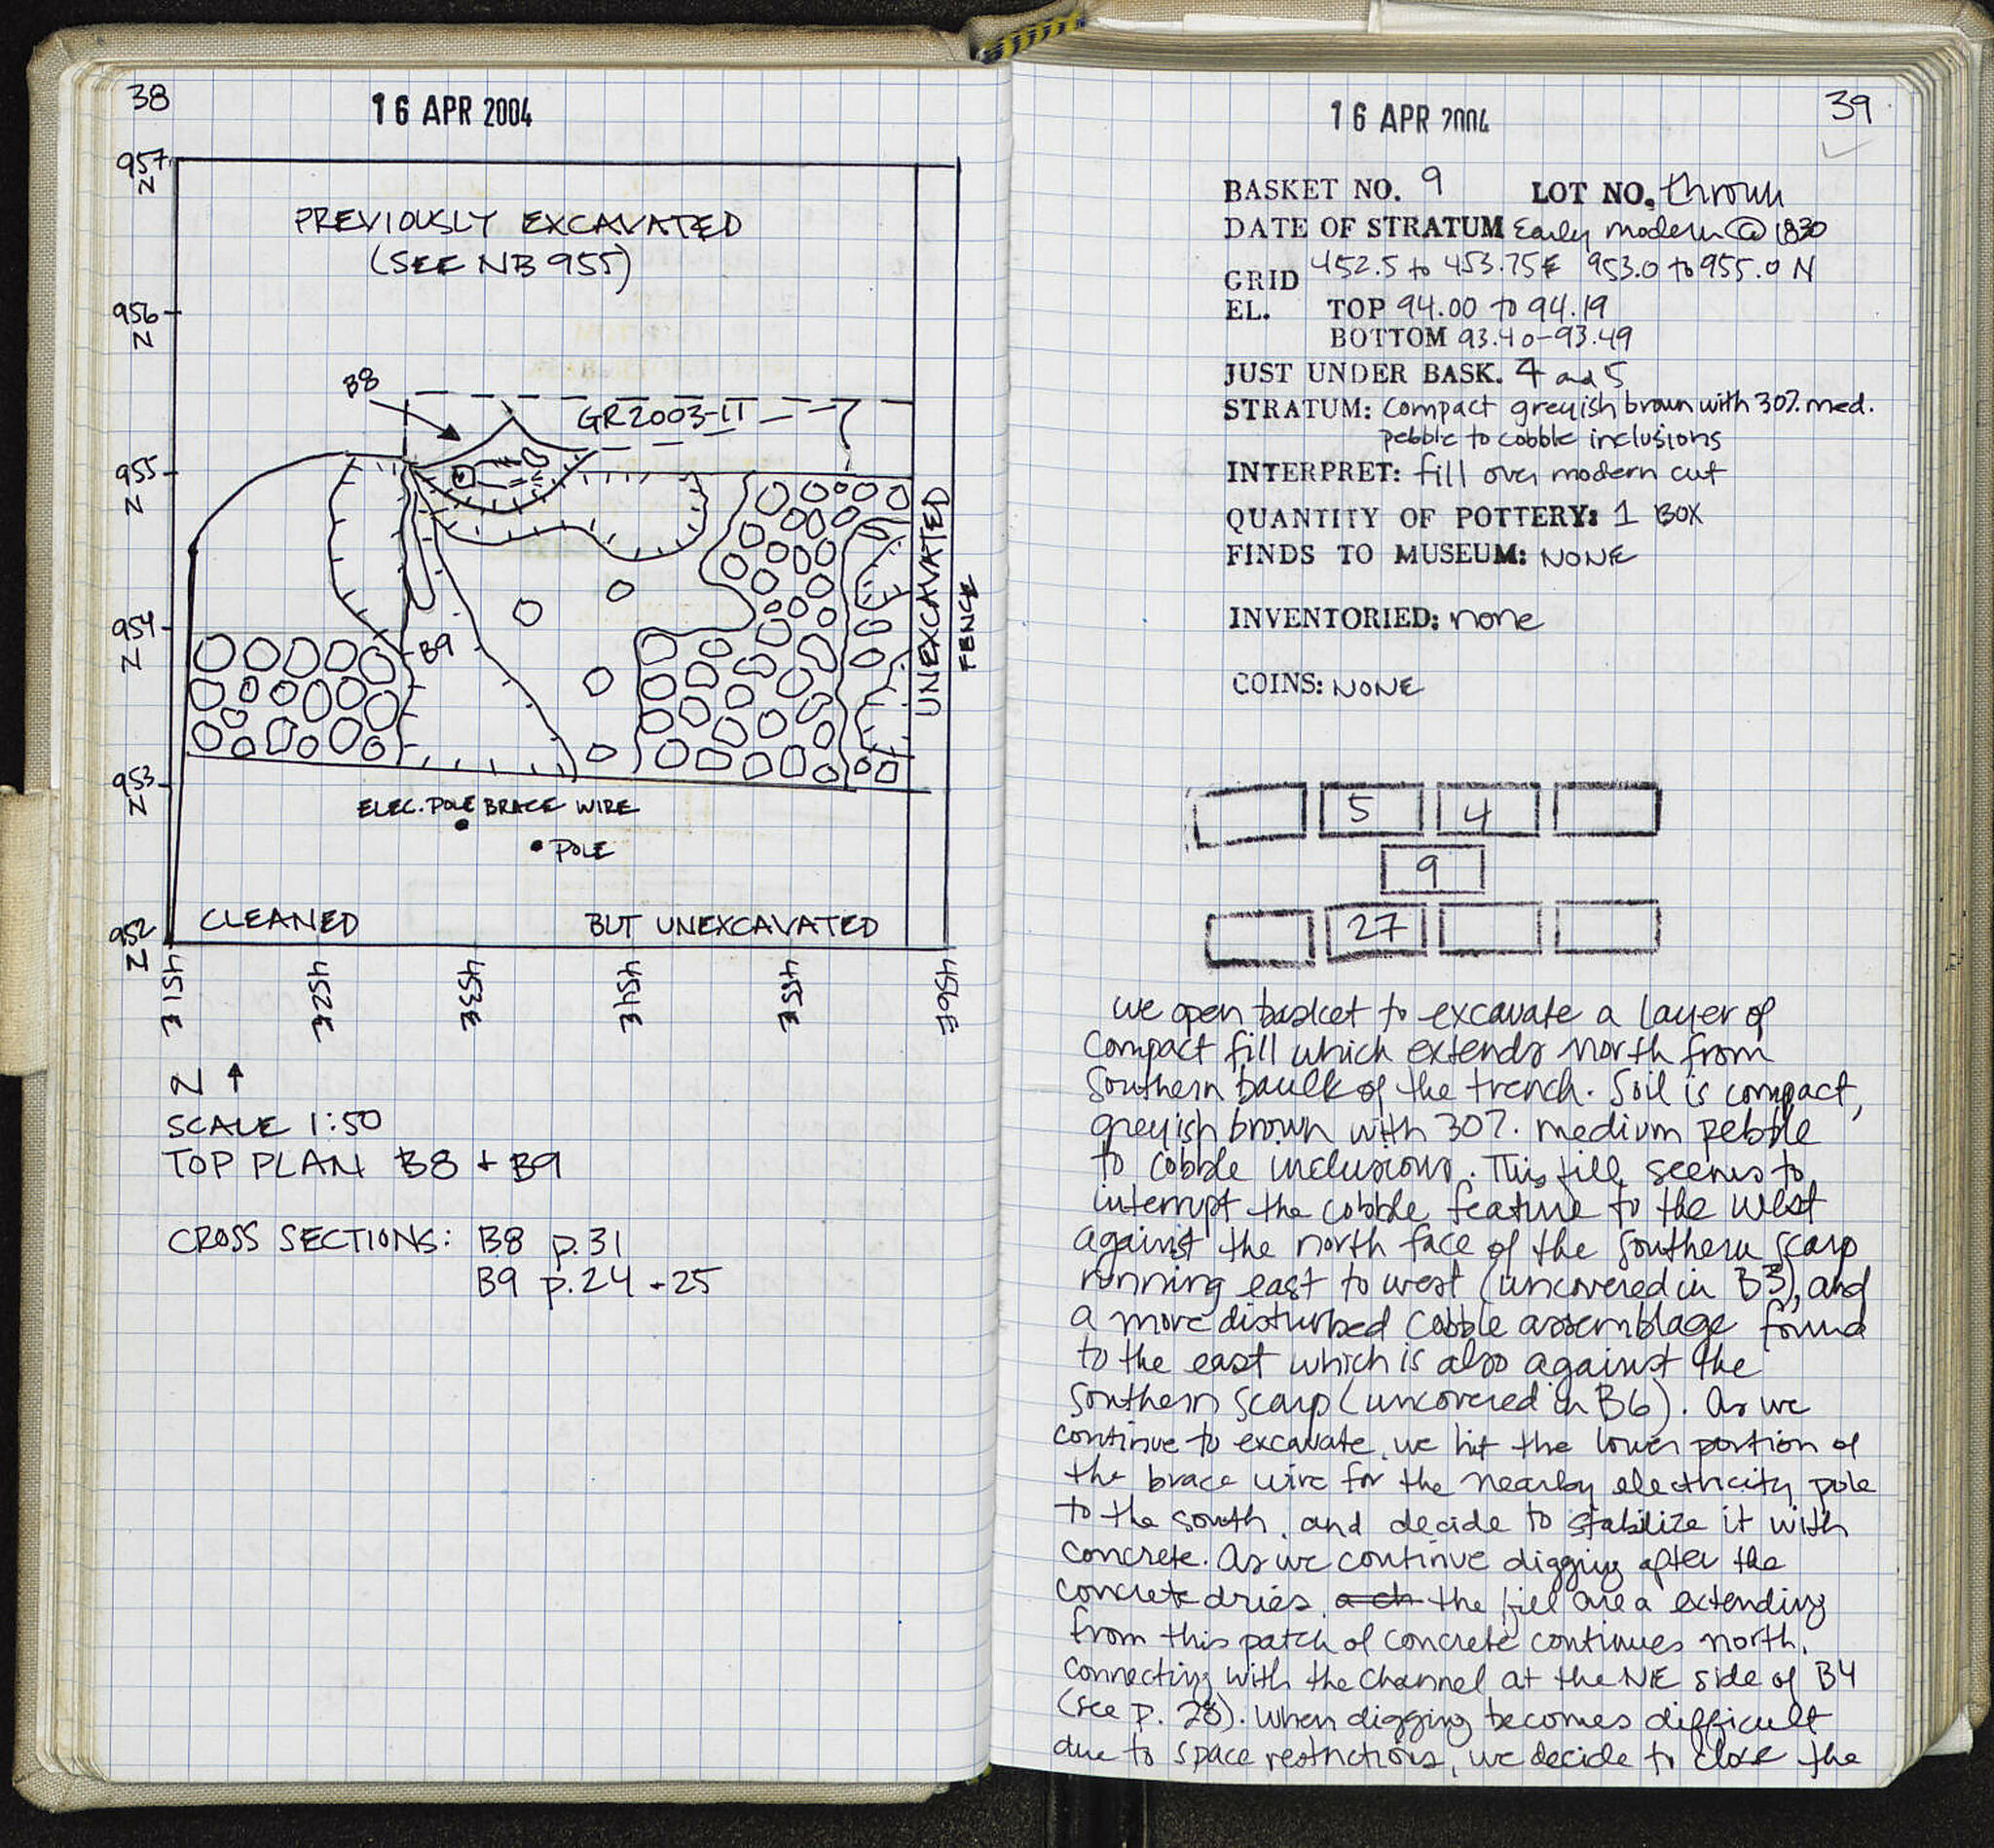 38
16 APR 2004
957
N
PREVIOUSLY EXCAVATED
(SEE NB 955)
956
N
B8
GR2003-IT
955
N
UNEXCAVATED
FENCE
954
N
B9
953
N
ELEC. POLE BRACE WIRE
POLE
952
N
CLEANED BUT UNEXCAVATED
451E 452E 453E 454E 455E 456E
N ↑
SCALE 1:50
TOP PLAN B8 + B9
CROSS SECTIONS: B8 p.31
B9 p.24-25
39
16 APR 2004
BASKET NO. 9 LOT NO. thrown
DATE OF STRATUM Early modern @ 1830
GRID 452.5 to 453.75E 953.0 to 955.0 N
EL. TOP 94.00 to 94.19
BOTTOM 93.40-93.49
JUST UNDER BASK. 4 and 5
STRATUM: Compact greyish brown with 30% med.
pebble to cobble inclusions
INTERPRET: fill over modern cut
QUANTITY OF POTTERY: 1 BOX
FINDS TO MUSEUM: NONE
INVENTORIED: none
COINS: NONE
5 4
9
27
we open basket to excavate a layer of
compact fill which extends north from
Southern baulk of the trench. Soil is compact,
greyish brown with 30%. medium pebble
to cobble inclusions. This fill seems to
interrupt the cobble feature to the west
against the north face of the southern scarp
running east to west (uncovered in B3), and
a more disturbed cobble assemblage found
to the east which is also against the
Southern scarp (uncovered in B6). As we
continue to excavate, we hit the lower portion of
the brace wire for the nearby electricity pole
to the south, and decide to stabilize it with
concrete. As we continue digging after the
concrete dries, a ch the fill area extending
from this patch of concrete continues north,
connecting with the channel at the NE side of B4
(see p. 28). When digging becomes difficult
due to space restrictions, we decide to close the